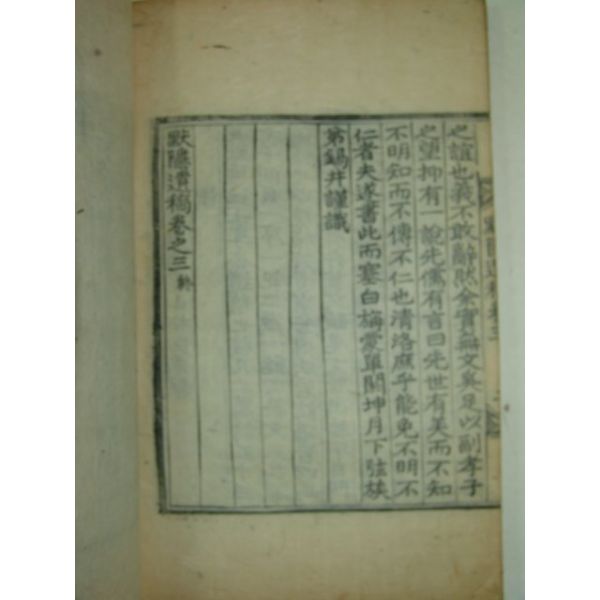 之誼也義不敢辭然余實無文奚足以副孝子
之望抑有一說先儒有言曰先世有美而不知
不明知而不傳不仁也清洛庶乎能免不明不
仁者夫遂書此而塞白旃蒙單閼坤月下弦族
弟錫井謹識
默隱遺稿卷之三 終
默隱遺稿卷三